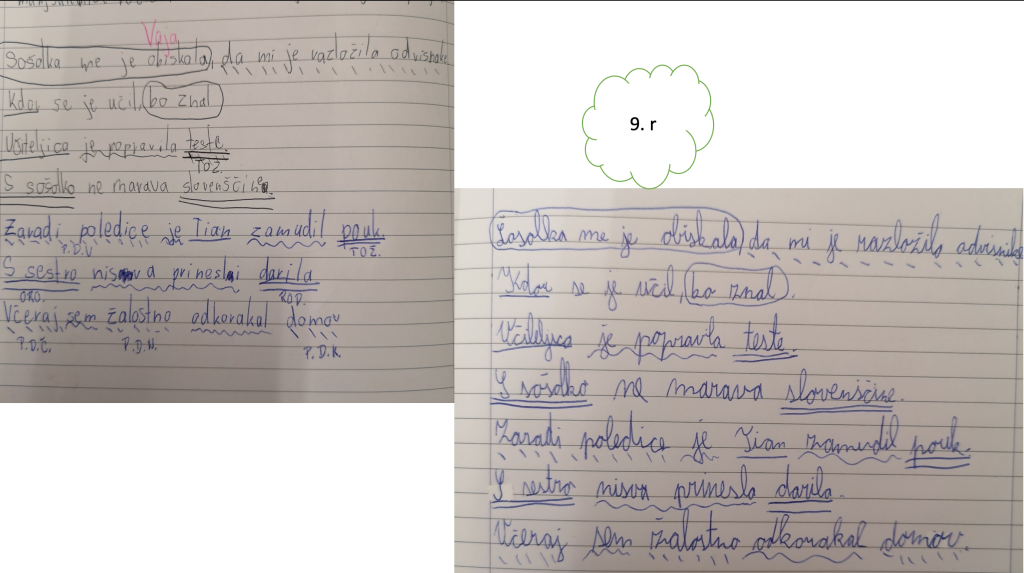 Vaja
Sošolka me je obiskala, da mi je razložila odvisnike
Kdor se je učil, bo znal
Učiteljica je popravila teste.
TOŽ.
S sošolko ne marava slovenščine.
Zaradi poledice je Tian zamudil pouk.
P.D.V TOŽ.
S sestro nisva prinesli darila
ORO. ROD.
Včeraj sem žalostno odkorakal domov
P.D.Č. P.D.N. P.D.K.
9. r
Sošolka me je obiskala, da mi je razložila odvisnike
Kdor se je učil, bo znal.
Učiteljica je popravila teste.
S sošolko ne marava slovenščine.
Zaradi poledice je Tian zamudil pouk.
S sestro nisva prinesla darila.
Včeraj sem žalostno odkorakal domov.